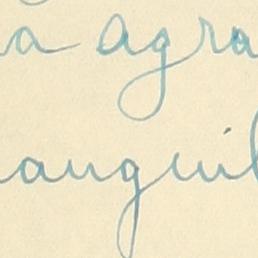 a agra
anquil